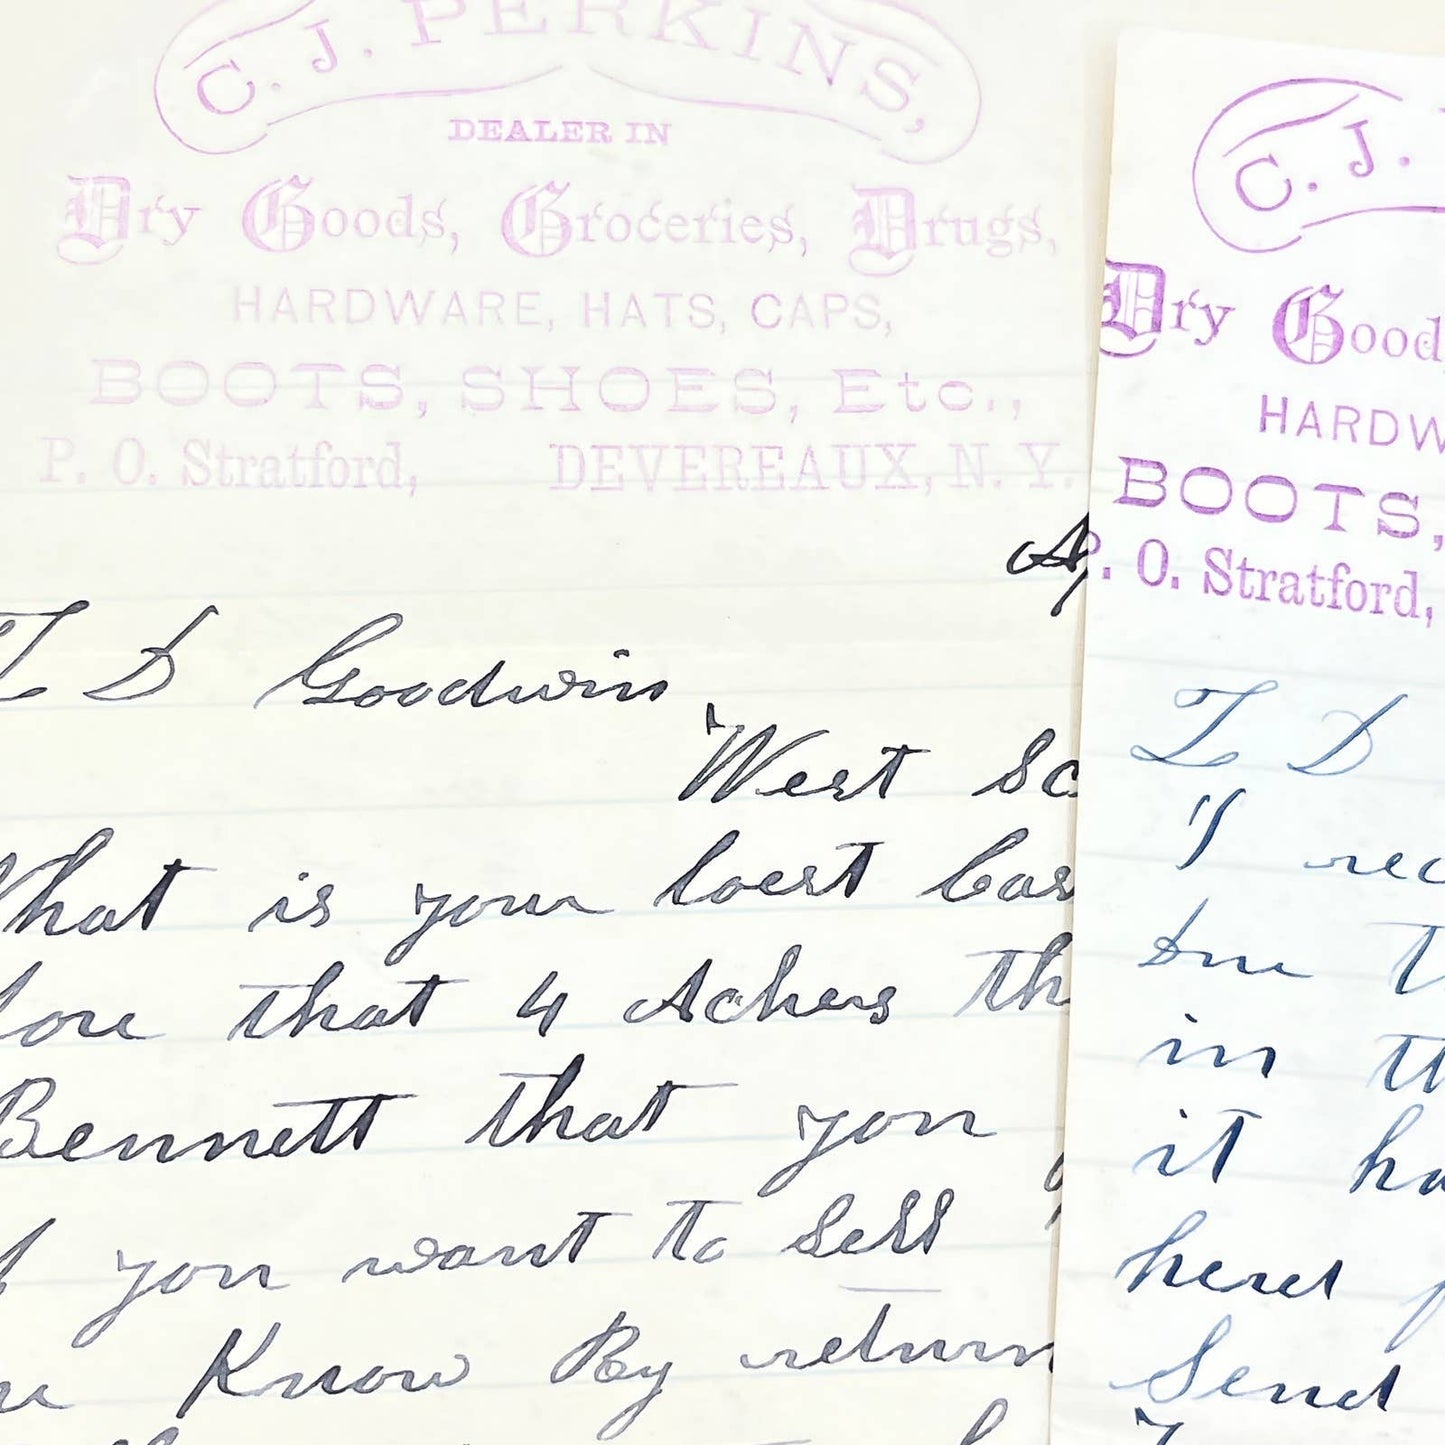 C. J. PERKINS,
DEALER IN
Dry Goods, Groceries, Drugs,
HARDWARE, HATS, CAPS,
BOOTS, SHOES, Etc.,
P. O. Stratford, DEVEREAUX, N. Y.
D Goodwin
West Sc
What is your loest Cas
for that 4 Achers th
Bennett that you
if you want to Sell
Know By return
C. J.
Dry Good
HARDW
BOOTS,
P. O. Stratford,
D
I rec
Due T
in th
it ha
herd
Send